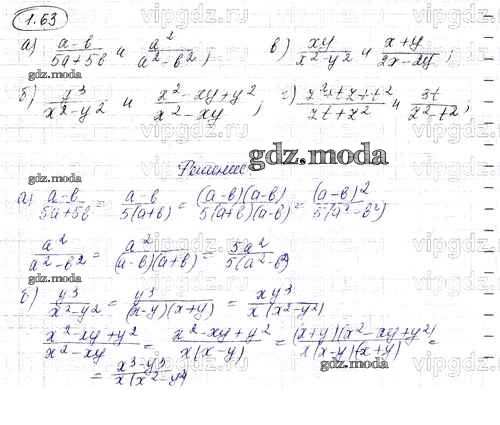 1.63
а) (a-b)/(5a+5b) и a²/(a²-b²); в) xy/(x²-y²) и (x+y)/(2x-2y);
gdz.moda
vipgdz.ru
б) y³/(x²-y²) и (x²-xy+y²)/(x²-xy); г) (z²+tz+t²)/(zt+z²) и 3t/(z²-t²);
gdz.moda
Решение
gdz.moda
а) (a-b)/(5a+5b) = (a-b)/(5(a+b)) = ((a-b)(a-b))/(5(a+b)(a-b)) = (a-b)²/(5(a²-b²))
gdz.moda
a²/(a²-b²) = a²/((a-b)(a+b)) = 5a²/(5(a²-b²))
gdz.moda
б) y³/(x²-y²) = y³/((x-y)(x+y)) = xy³/(x(x²-y²))
(x²-xy+y²)/(x²-xy) = (x²-xy+y²)/(x(x-y)) = ((x+y)(x²-xy+y²))/(x(x-y)(x+y)) =
= (x³-y³)/(x(x²-y²))
gdz.moda